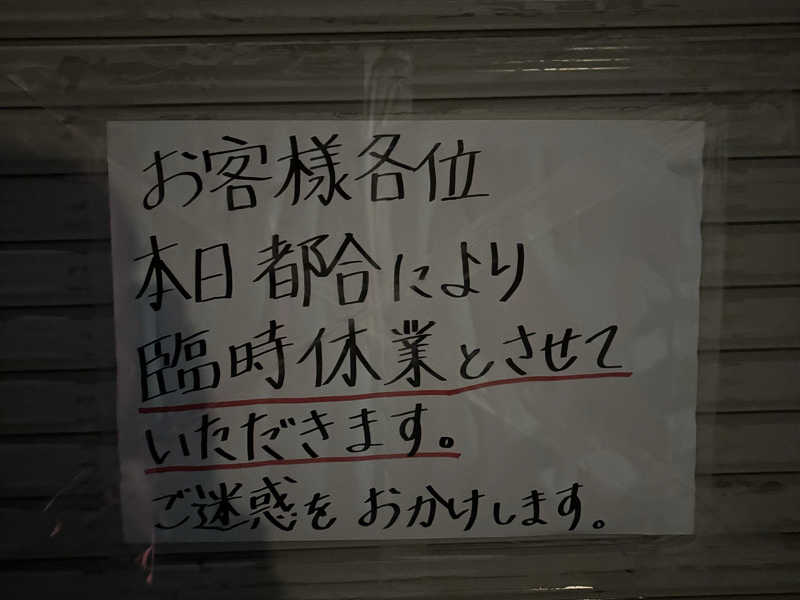 お客様各位
本日都合により
臨時休業とさせて
いただきます。
ご迷惑をおかけします。